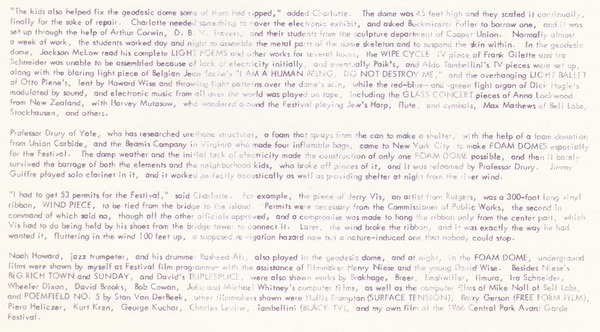 "The kids also helped fix the geodesic dome some of them had ripped," added Charlotte. The dome was 45 feet high and they scaled it continually,
finally for the sake of repair. Charlotte needed something to cover the electronic exhibit, and asked Buckminster Fuller to borrow one, and it was
set up through the help of Arthur Corwin, D. B. M. Travers, and their students from the sculpture department of Cooper Union. Normally almost
a week of work, the students worked day and night to assemble the metal parts of the dome skeleton and to suspend the skin within. In the geodesic
dome, Jackson McLow read his complete LIGHT POEMS and other works for several hours, the WIPE CYCLE TV piece of Frank Gilette and Ira
Schneider was unable to be assembled because of lack of electricity initially, and eventually Paik's, and Aldo Tambellini's TV pieces were set up,
along with the blaring light piece of Belgian Jean Toche's "I AM A HUMAN BEING, DO NOT DESTROY ME," and the overhanging LIGHT BALLET
of Otto Piene's, lent by Howard Wise and throwing light patterns over the dome's skin, while the red-blue-and-green light organ of Dick Hogle's
modulated by sound, and electronic music from all over the world was played on tape, including the GLASS CONCERT pieces of Anna Lockwood
from New Zealand, with Harvey Matusow, who wandered around the Festival playing Jew's Harp, flute, and cymbals, Max Mathews of Bell Labs,
Stockhausen, and others.

Professor Drury of Yale, who has researched urethane structures, a foam that sprays from the can to make a shelter, with the help of a foam donation
from Union Carbide, and the Beamis Company in Virginia who made four inflatable bags, came to New York City to make FOAM DOMES especially
for the Festival. The damp weather and the initial lack of electricity made the construction of only one FOAM DOME possible, and then it barely
survived the barrage of both the elements and the neighborhood kids, who broke off pieces of it, and it was refoamed by Professor Drury. Jimmy
Guiffre played solo clarinet in it, and it worked perfectly acoustically as well as providing shelter at night from the river wind.

"I had to get 53 permits for the Festival," said Charlotte. For example, the piece of Jerry Vis, an artist from Rutgers, was a 300-foot long vinyl
ribbon, WIND PIECE, to be tied from the bridge to the island. Permits were necessary from the Commissioner of Public Works, the second in
command of which said no, though all the other officials approved, and a compromise was made to hang the ribbon only from the center part, which
Vis had to do being held by his shoes from the bridge tower to connect it. Later, the wind broke the ribbon, and it was exactly the way he had
wanted it, fluttering in the wind 100 feet up, a supposed navigation hazard now but a nature-induced one that nobody could stop.

Noah Howard, jazz trumpeter, and his drummer Rashied Ali, also played in the geodesic dome, and at night, in the FOAM DOME, underground
films were shown by myself as Festival film programmer with the assistance of filmmaker Henry Niese and the young David Wise. Besides Niese's
BIG RICH TOWN and SUNDAY, and David's TRIPLESPLICE, were also shown works by Brakhage, Breer, Emshwiller, Iimura, Ira Schneider,
Wheeler Dixon, David Brooks, Bob Cowan, John and Michael Whitney's computer films, as well as the computer films of Mike Noll of Bell Labs,
and POEMFIELD NO. 5 by Stan VanDerBeek, other filmmakers shown were Hollis Frampton (SURFACE TENSION), Barry Gerson (FREE FORM FILM),
Piero Heliczer, Kurt Kren, George Kuchar, Charles Levine, Tambellini (BLACK TV), and my own film of the 1966 Central Park Avant Garde
Festival.